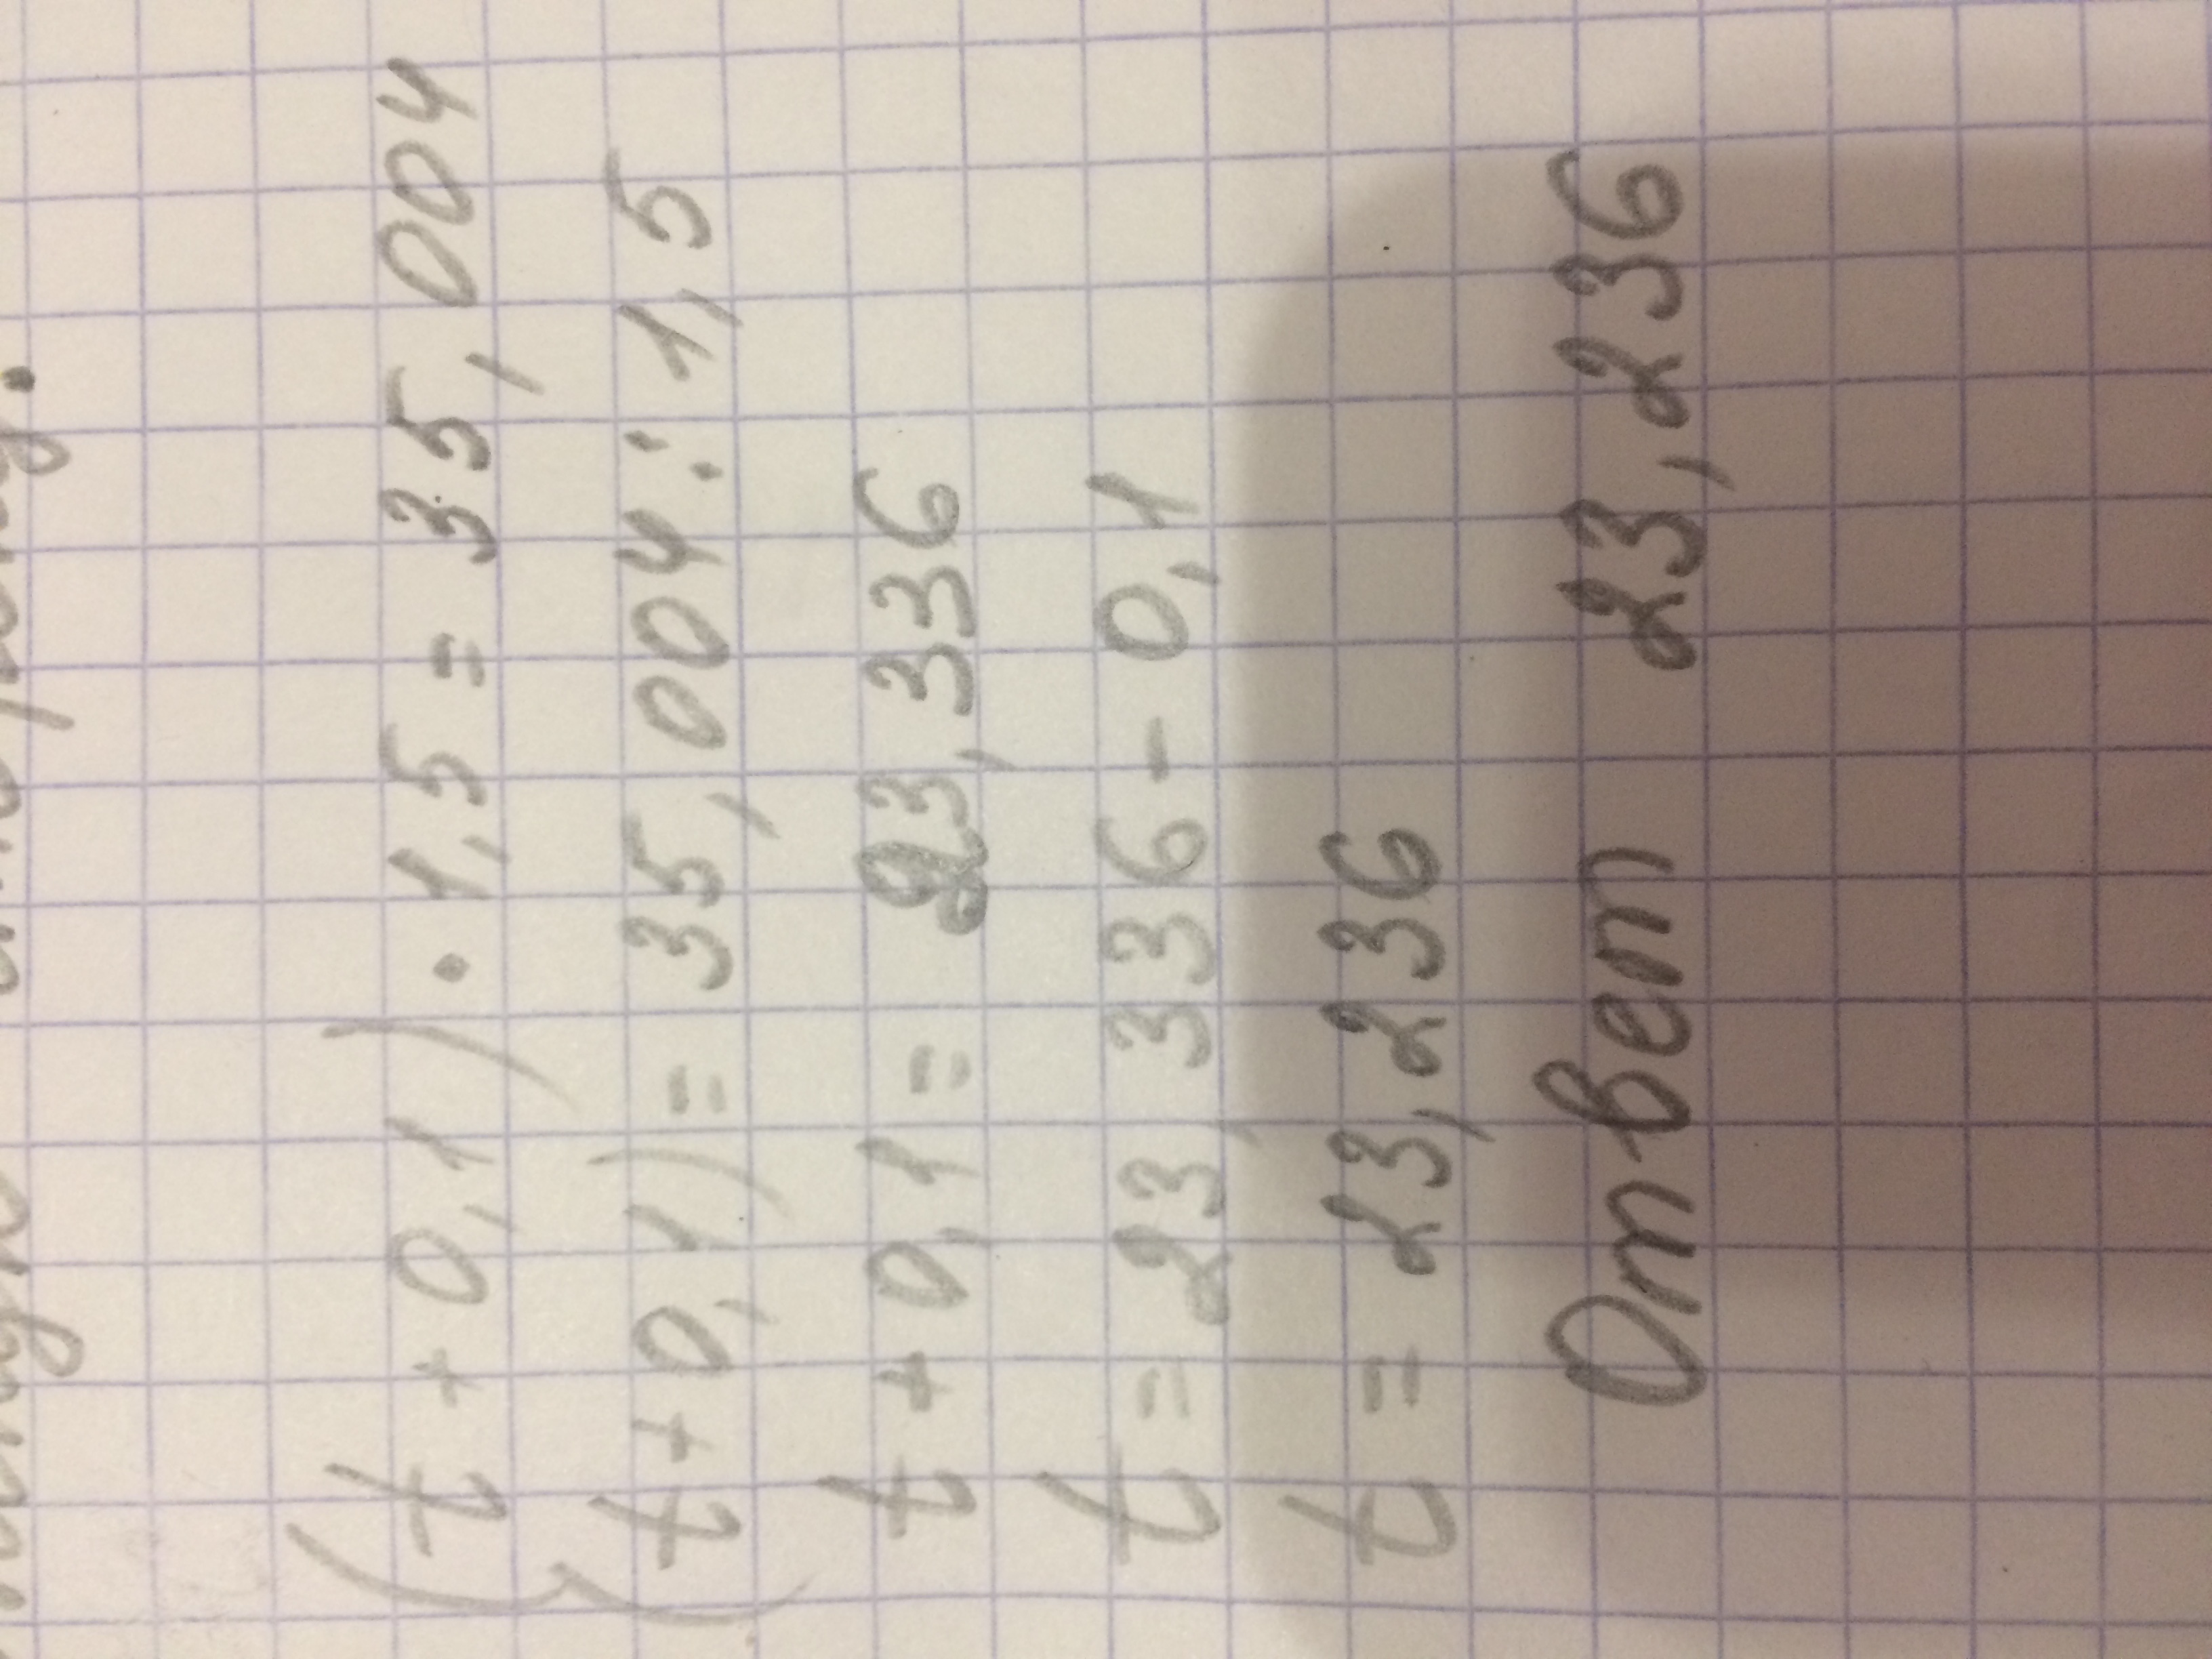 (t + 0,1) · 1,5 = 35,004
(t + 0,1) = 35,004 : 1,5
t + 0,1 = 23,336
t = 23,336 - 0,1
t = 23,236
Ответ 23,236